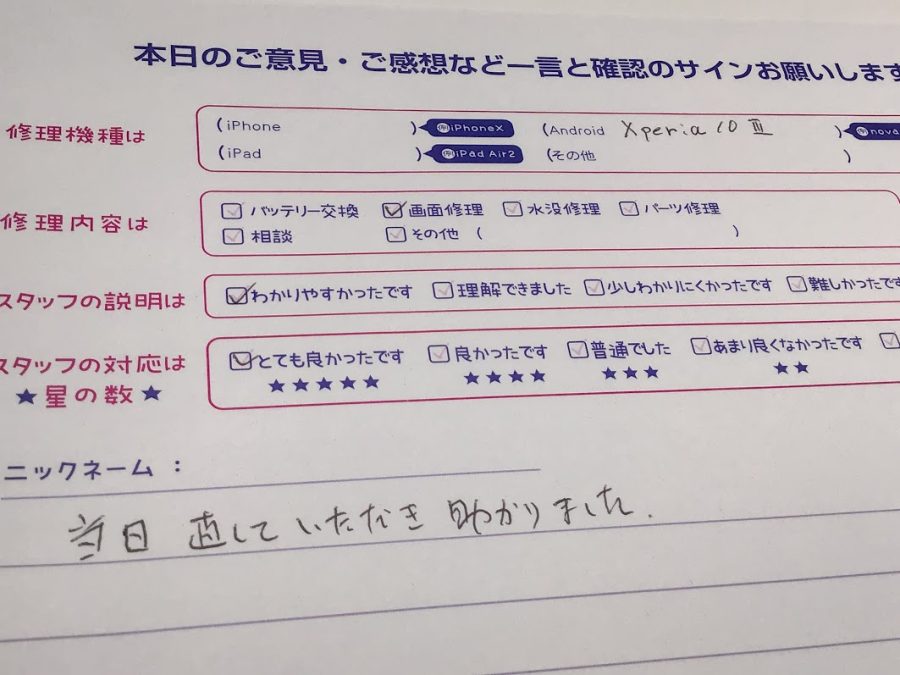 本日のご意見・ご感想など一言と確認のサインお願いします
修理機種は
(iPhone ) 例iPhoneX (Android Xperia 10 III ) 例nova
(iPad ) 例iPad Air2 (その他 )
修理内容は
バッテリー交換 画面修理 水没修理 パーツ修理
相談 その他 ( )
スタッフの説明は
わかりやすかったです 理解できました 少しわかりにくかったです 難しかったです
スタッフの対応は
★星の数★
とても良かったです 良かったです 普通でした あまり良くなかったです
★★★★★ ★★★★ ★★★ ★★
ニックネーム：
当日 直していただき 助かりました.